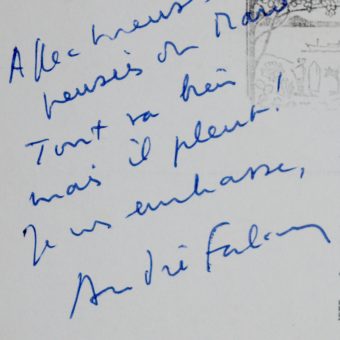 Affectueuses
pensées du Maroc
Tout va bien
mais il pleut!
Je vs embrasse,
André